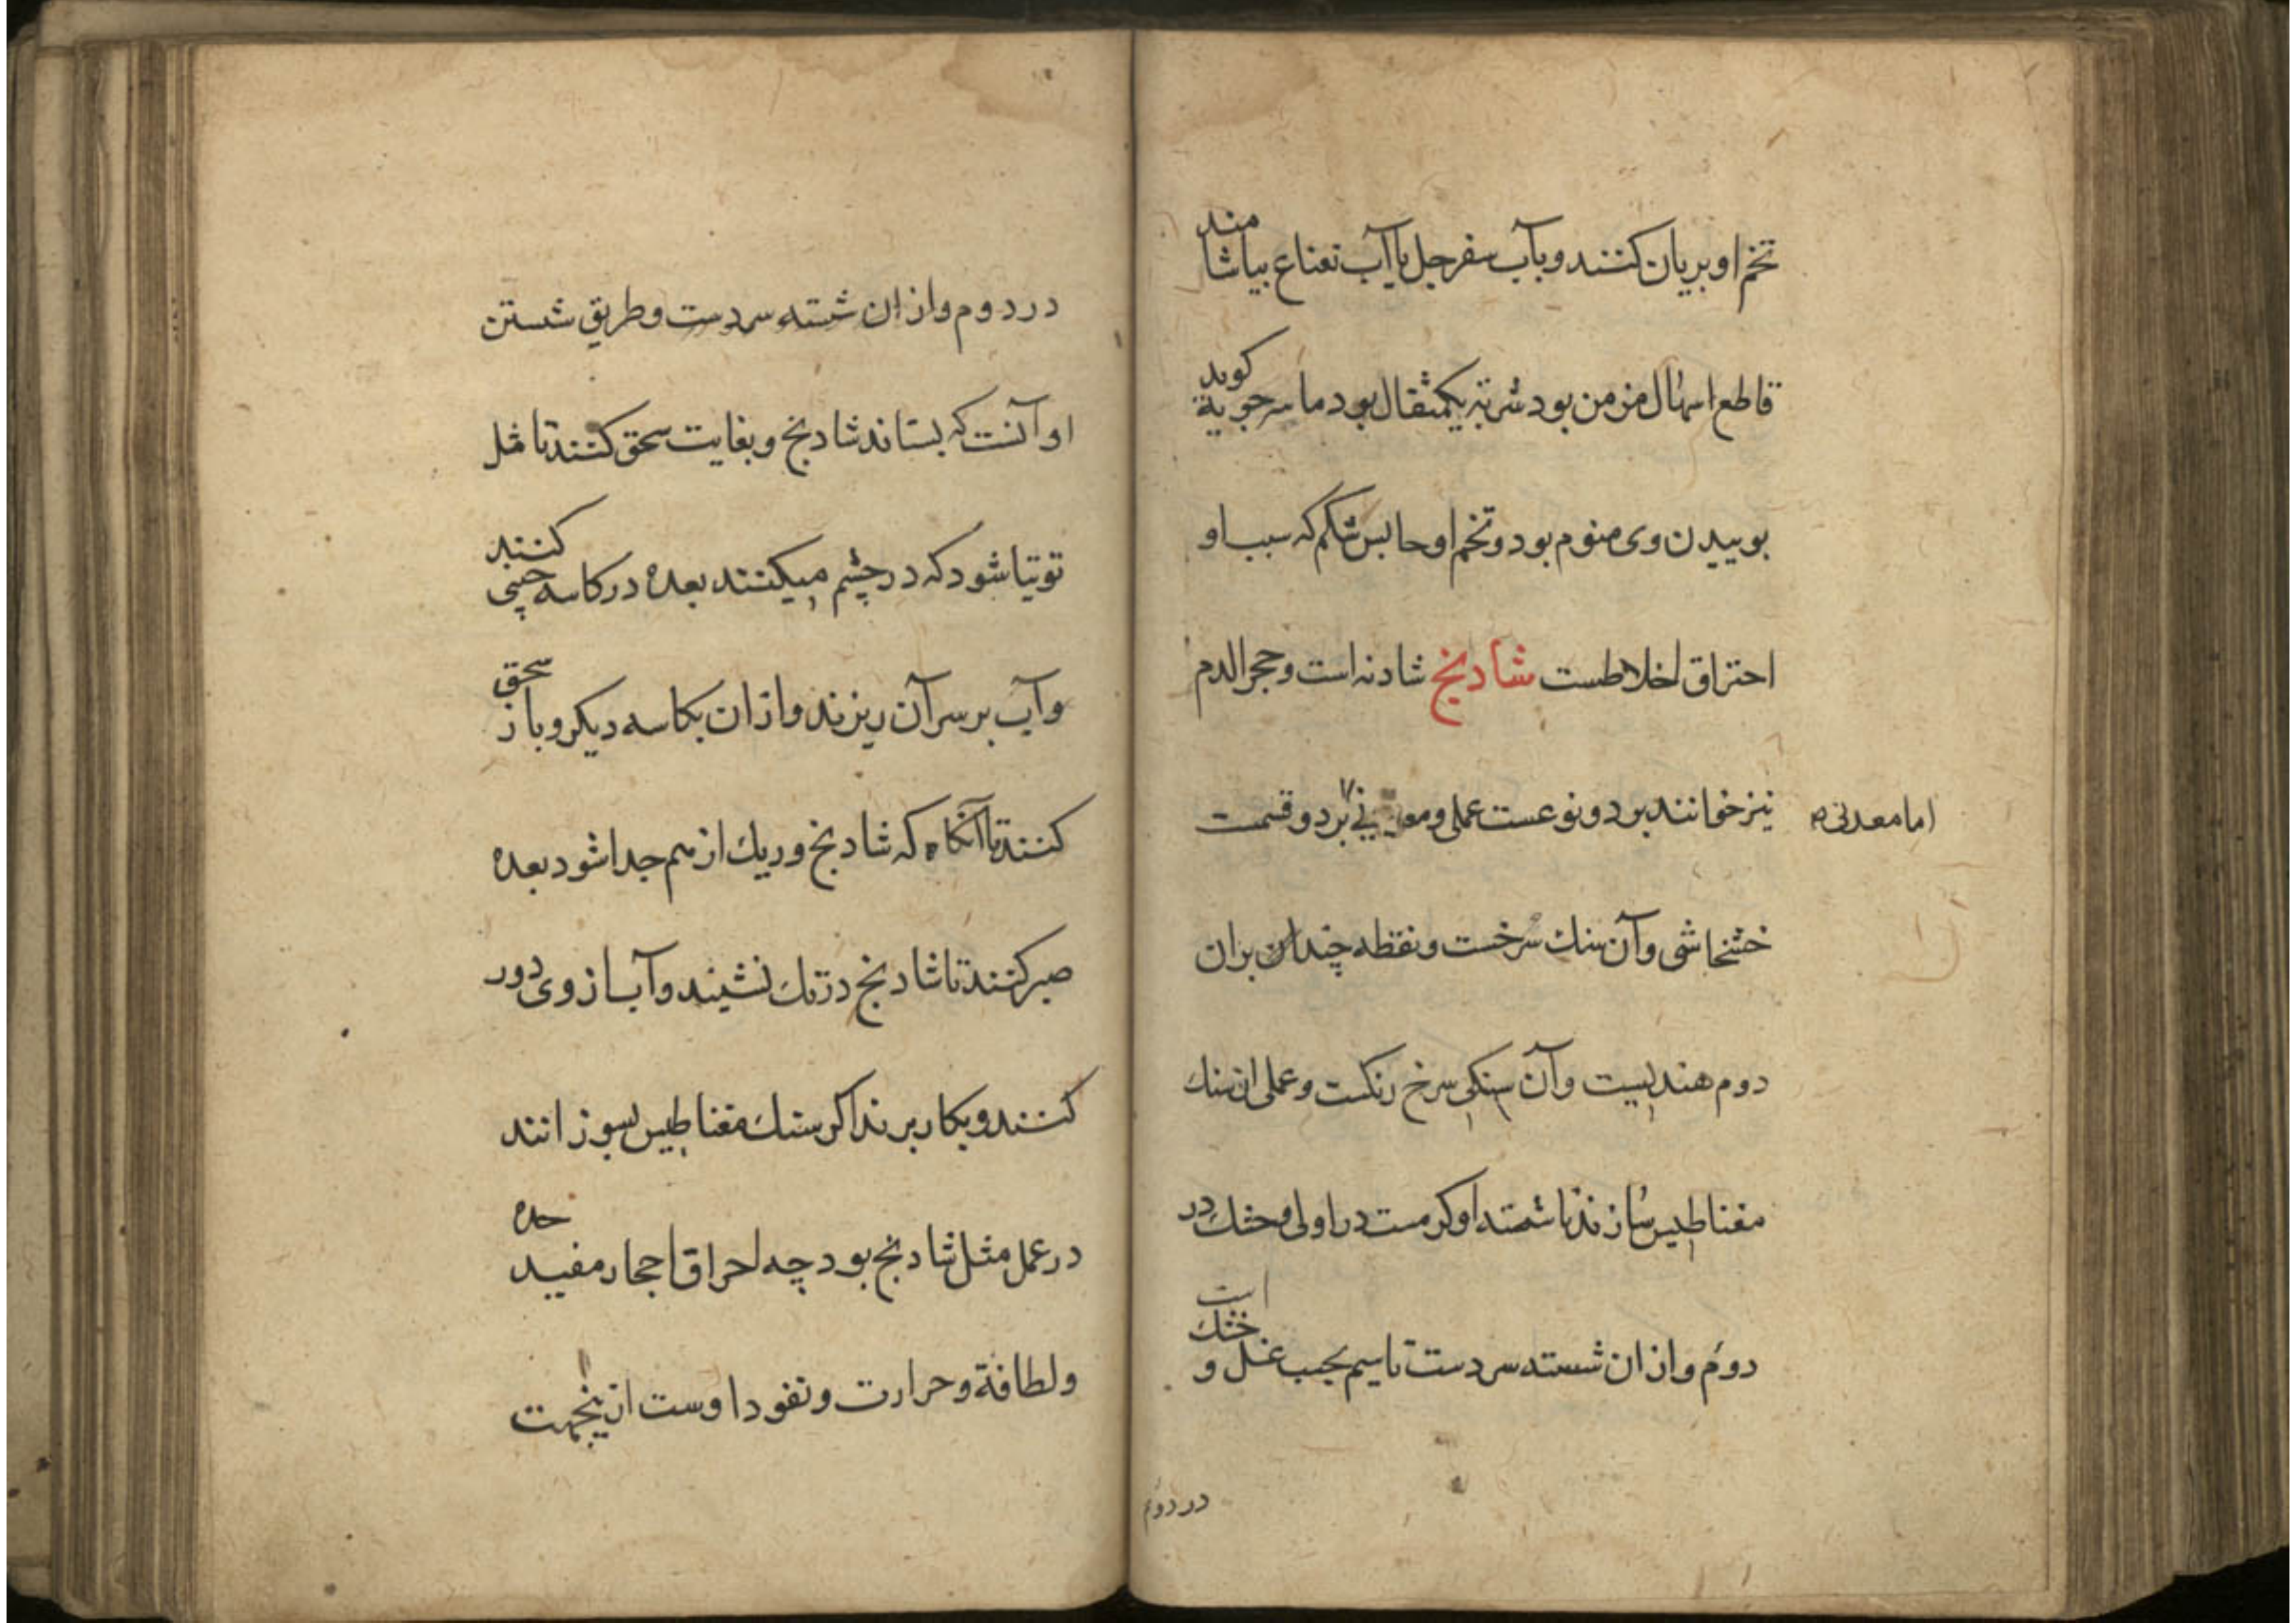 تخم او بریان کنند و بآب سفرجل یا آب نعناع بیاشامند
قاطع اسهال مزمن بود شربته یکمثقال بود ماسرجویة کوید
بوییدن وی منوم بود و تخم او حابس شکم که سبب او
احتراق اخلاطست شادنج شادنه است و حجر الدم
نیز خوانند بر دو نوعست عملی و معدنی بر دو قسمت
اما معدنی
خشخاشی و آن سنك سرخست و نقطه چندان بران
دوم هندیست و آن سنکی سرخ رنکست و عملی ان سنك
مغناطیس سازند ناشسته او کرمست در اولی و خشك در
دوم و از ان شسته سردست تا سیم بحسب غسل و خشك است
در دوم
در دوم و از ان شسته سردست و طریق شستن
او آنست که بستاند شادنج و بغایت سحق کنند تا مثل
توتیا شود که در چشم میکنند بعده در کاسه چینی کنند
و آب بر سر آن ریزند و از ان بکاسه دیکر و باز سحق
کنند تا آنکاه که شادنج و ریك از هم جدا شود بعده
صبر کنند تا شادنج در تك نشیند و آب از وی دور
کنند و بکار برند اکر سنك مغناطیس بسوزانند
در عمل مثل شادنج بود چه احراق احجار مفید حده
و لطافة و حرارت و نفود اوست ازینجهت